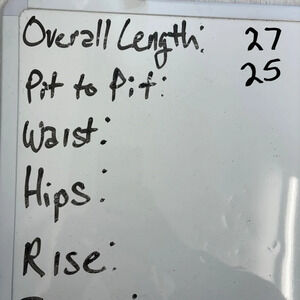 Overall Length: 27
Pit to Pit: 25
Waist:
Hips:
Rise: